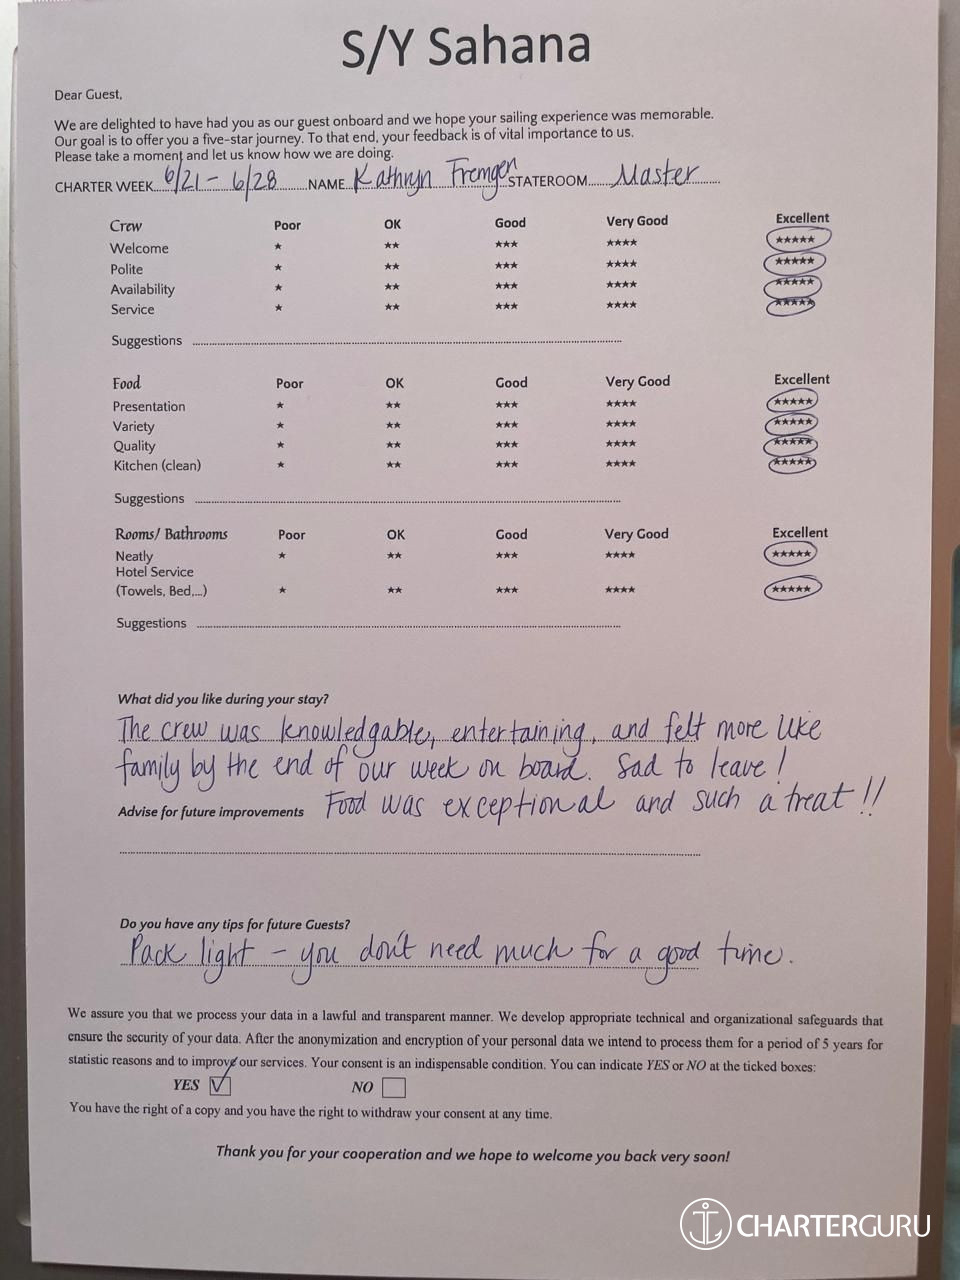 S/Y Sahana
Dear Guest,
We are delighted to have had you as our guest onboard and we hope your sailing experience was memorable.
Our goal is to offer you a five-star journey. To that end, your feedback is of vital importance to us.
Please take a moment and let us know how we are doing.
CHARTER WEEK 6/21 - 6/28 NAME Kathryn Fremgen STATEROOM Master
Crew Poor OK Good Very Good Excellent
Welcome * ** *** **** *****
Polite * ** *** **** *****
Availability * ** *** **** *****
Service * ** *** **** *****
Suggestions
Food Poor OK Good Very Good Excellent
Presentation * ** *** **** *****
Variety * ** *** **** *****
Quality * ** *** **** *****
Kitchen (clean) * ** *** **** *****
Suggestions
Rooms/ Bathrooms Poor OK Good Very Good Excellent
Neatly * ** *** **** *****
Hotel Service
(Towels, Bed,...) * ** *** **** *****
Suggestions
What did you like during your stay?
The crew was knowledgable, entertaining, and felt more like
family by the end of our week on board. Sad to leave!
Advise for future improvements Food was exceptional and such a treat!!
Do you have any tips for future Guests?
Pack light - you don't need much for a good time.
We assure you that we process your data in a lawful and transparent manner. We develop appropriate technical and organizational safeguards that
ensure the security of your data. After the anonymization and encryption of your personal data we intend to process them for a period of 5 years for
statistic reasons and to improve our services. Your consent is an indispensable condition. You can indicate YES or NO at the ticked boxes:
YES NO
You have the right of a copy and you have the right to withdraw your consent at any time.
Thank you for your cooperation and we hope to welcome you back very soon!
CHARTERGURU